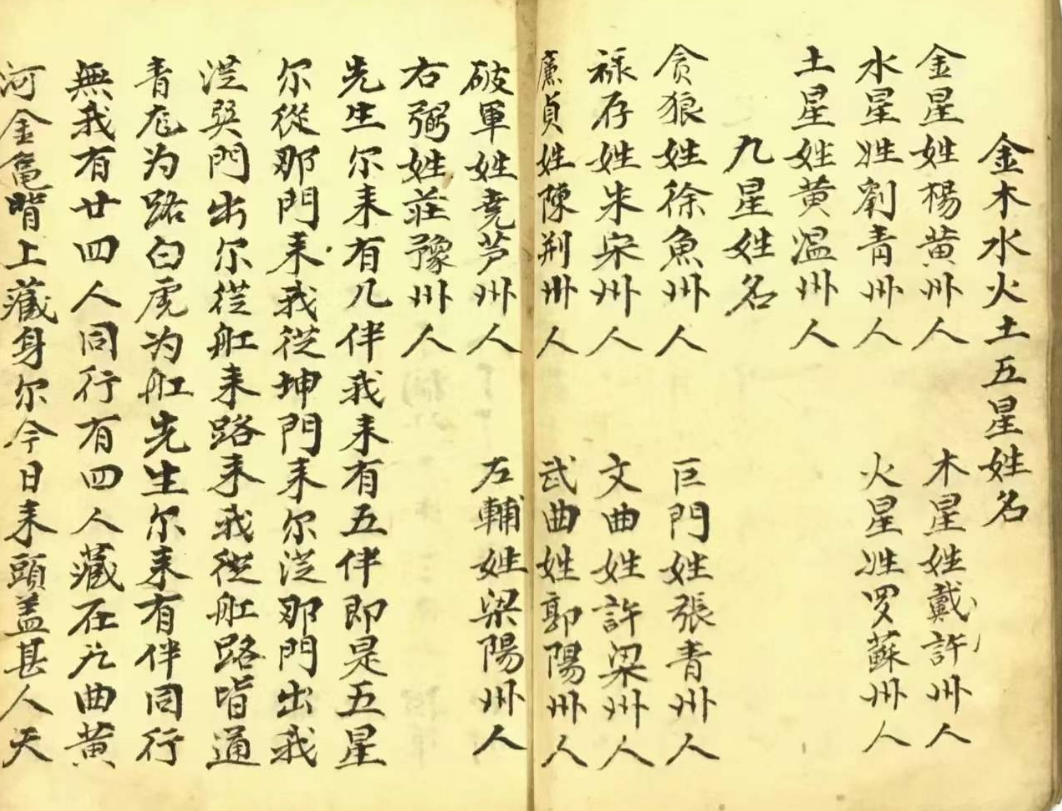 金木水火土五星姓名
金星姓楊黄州人 木星姓戴許州人
水星姓劉青州人 火星姓罗蘇州人
土星姓黄温州人
九星姓名
贪狼姓徐魚州人 巨門姓張青州人
禄存姓朱宋州人 文曲姓許梁州人
廉貞姓陳荆州人 武曲姓郭陽州人
破軍姓堯芦州人 左輔姓梁陽州人
右弼姓莊豫州人
先生尔来有几伴我来有五伴即是五星
尔從那門来我從坤門来尔從那門出我
從巽門出尔從舡来路来我從舡路皆通
青龙为路白虎为舡先生尔来有伴同行
無我有廿四人同行有四人藏在九曲黄
河金龜背上藏身尔今日来頭盖甚人天